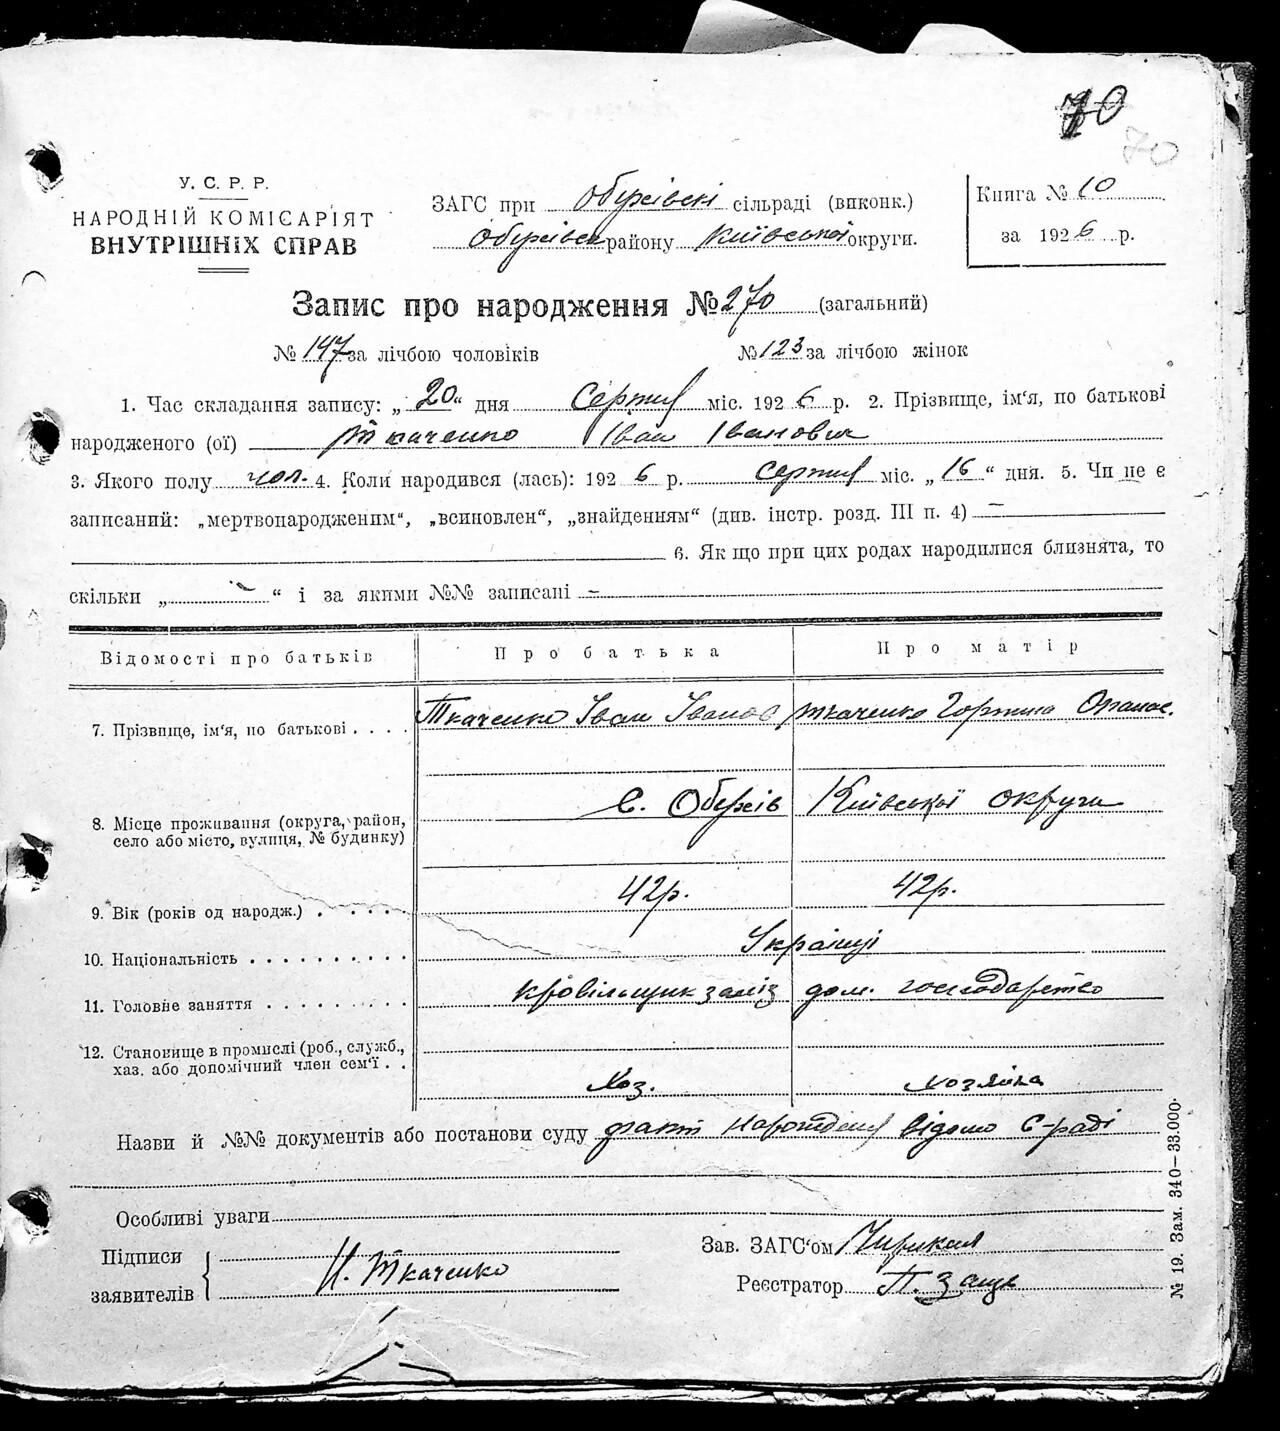 70
70
У. С. Р. Р.
НАРОДНІЙ КОМІСАРІЯТ
ВНУТРІШНІХ СПРАВ
ЗАГС при Обухівскі сільраді (виконк.)
району Київської округи.
Книга № 10
за 1926 р.
Запис про народження № 270 (загальний)
№ 147 за лічбою чоловіків № 123 за лічбою жінок
1. Час складання запису: „ 20 “ дня Серпня міс. 1926 р. 2. Прізвище, ім'я, по батькові
народженого (ої) Ткаченко Іван Іванович
3. Якого полу чол. 4. Коли народився (лась): 1926 р. Серпня міс. „ 16 “ дня. 5. Чи не є
записаний: „мертвонародженим“, „всиновлен“, „знайденням“ (див. інстр. розд. III п. 4) —
6. Як що при цих родах народилися близнята, то
скільки „ — “ і за якими №№ записані —
Відомості про батьків Про батька Про матір
7. Прізвище, ім'я, по батькові . . . . Ткаченко Іван Іванов Ткаченко Горпина Опанас.
8. Місце проживання (округа, район, село або місто, вулиця, № будинку) с. Обухів Київської округи
9. Вік (років од народж.) . . . . . 42р. 42р.
10. Національність . . . . . . . . . . Українці
11. Головне заняття . . . . . . . . . кровільщик заліз дом. господарство
12. Становище в промислі (роб., служб., хаз. або допомічний член сем'ї . . Хоз. хозяйка
Назви й №№ документів або постанови суду факт народження відомо С-раді
Особливі уваги
Підписи
заявителів И. Ткаченко
Зав. ЗАГС'ом
Реєстратор П.
№ 19. Зам. 340—33.000.